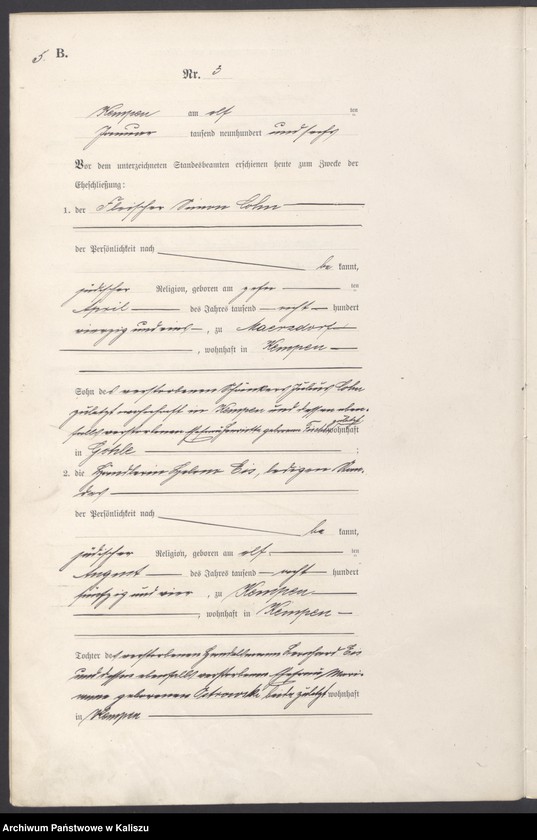 5. B.
Nr. 3
Kempen am elf ten
Januar tausend neunhundert und sechs
Vor dem unterzeichneten Standesbeamten erschienen heute zum Zwecke der
Eheschließung:
1. der Fleischer Simon Cohn
der Persönlichkeit nach
be kannt,
jüdischer Religion, geboren am zehn ten
April des Jahres tausend acht hundert
vierzig und eins, zu
, wohnhaft in Kempen
Sohn des verstorbenen Julius Cohn
zuletzt wohnhaft in Kempen und dessen eben-
falls verstorbenen geborene zuletzt wohnhaft
in ;
2. die Händlerin Helene Eis, ledigen Stan-
des
der Persönlichkeit nach
be kannt,
jüdischer Religion, geboren am elf ten
August des Jahres tausend acht hundert
fünfzig und vier, zu Kempen
, wohnhaft in Kempen
Tochter des verstorbenen Handelsmann Bernhard Eis
und dessen ebenfalls verstorbenen Ehefrau
geborenen Ostrowski beide zuletzt wohnhaft
in Kempen
Archiwum Państwowe w Kaliszu